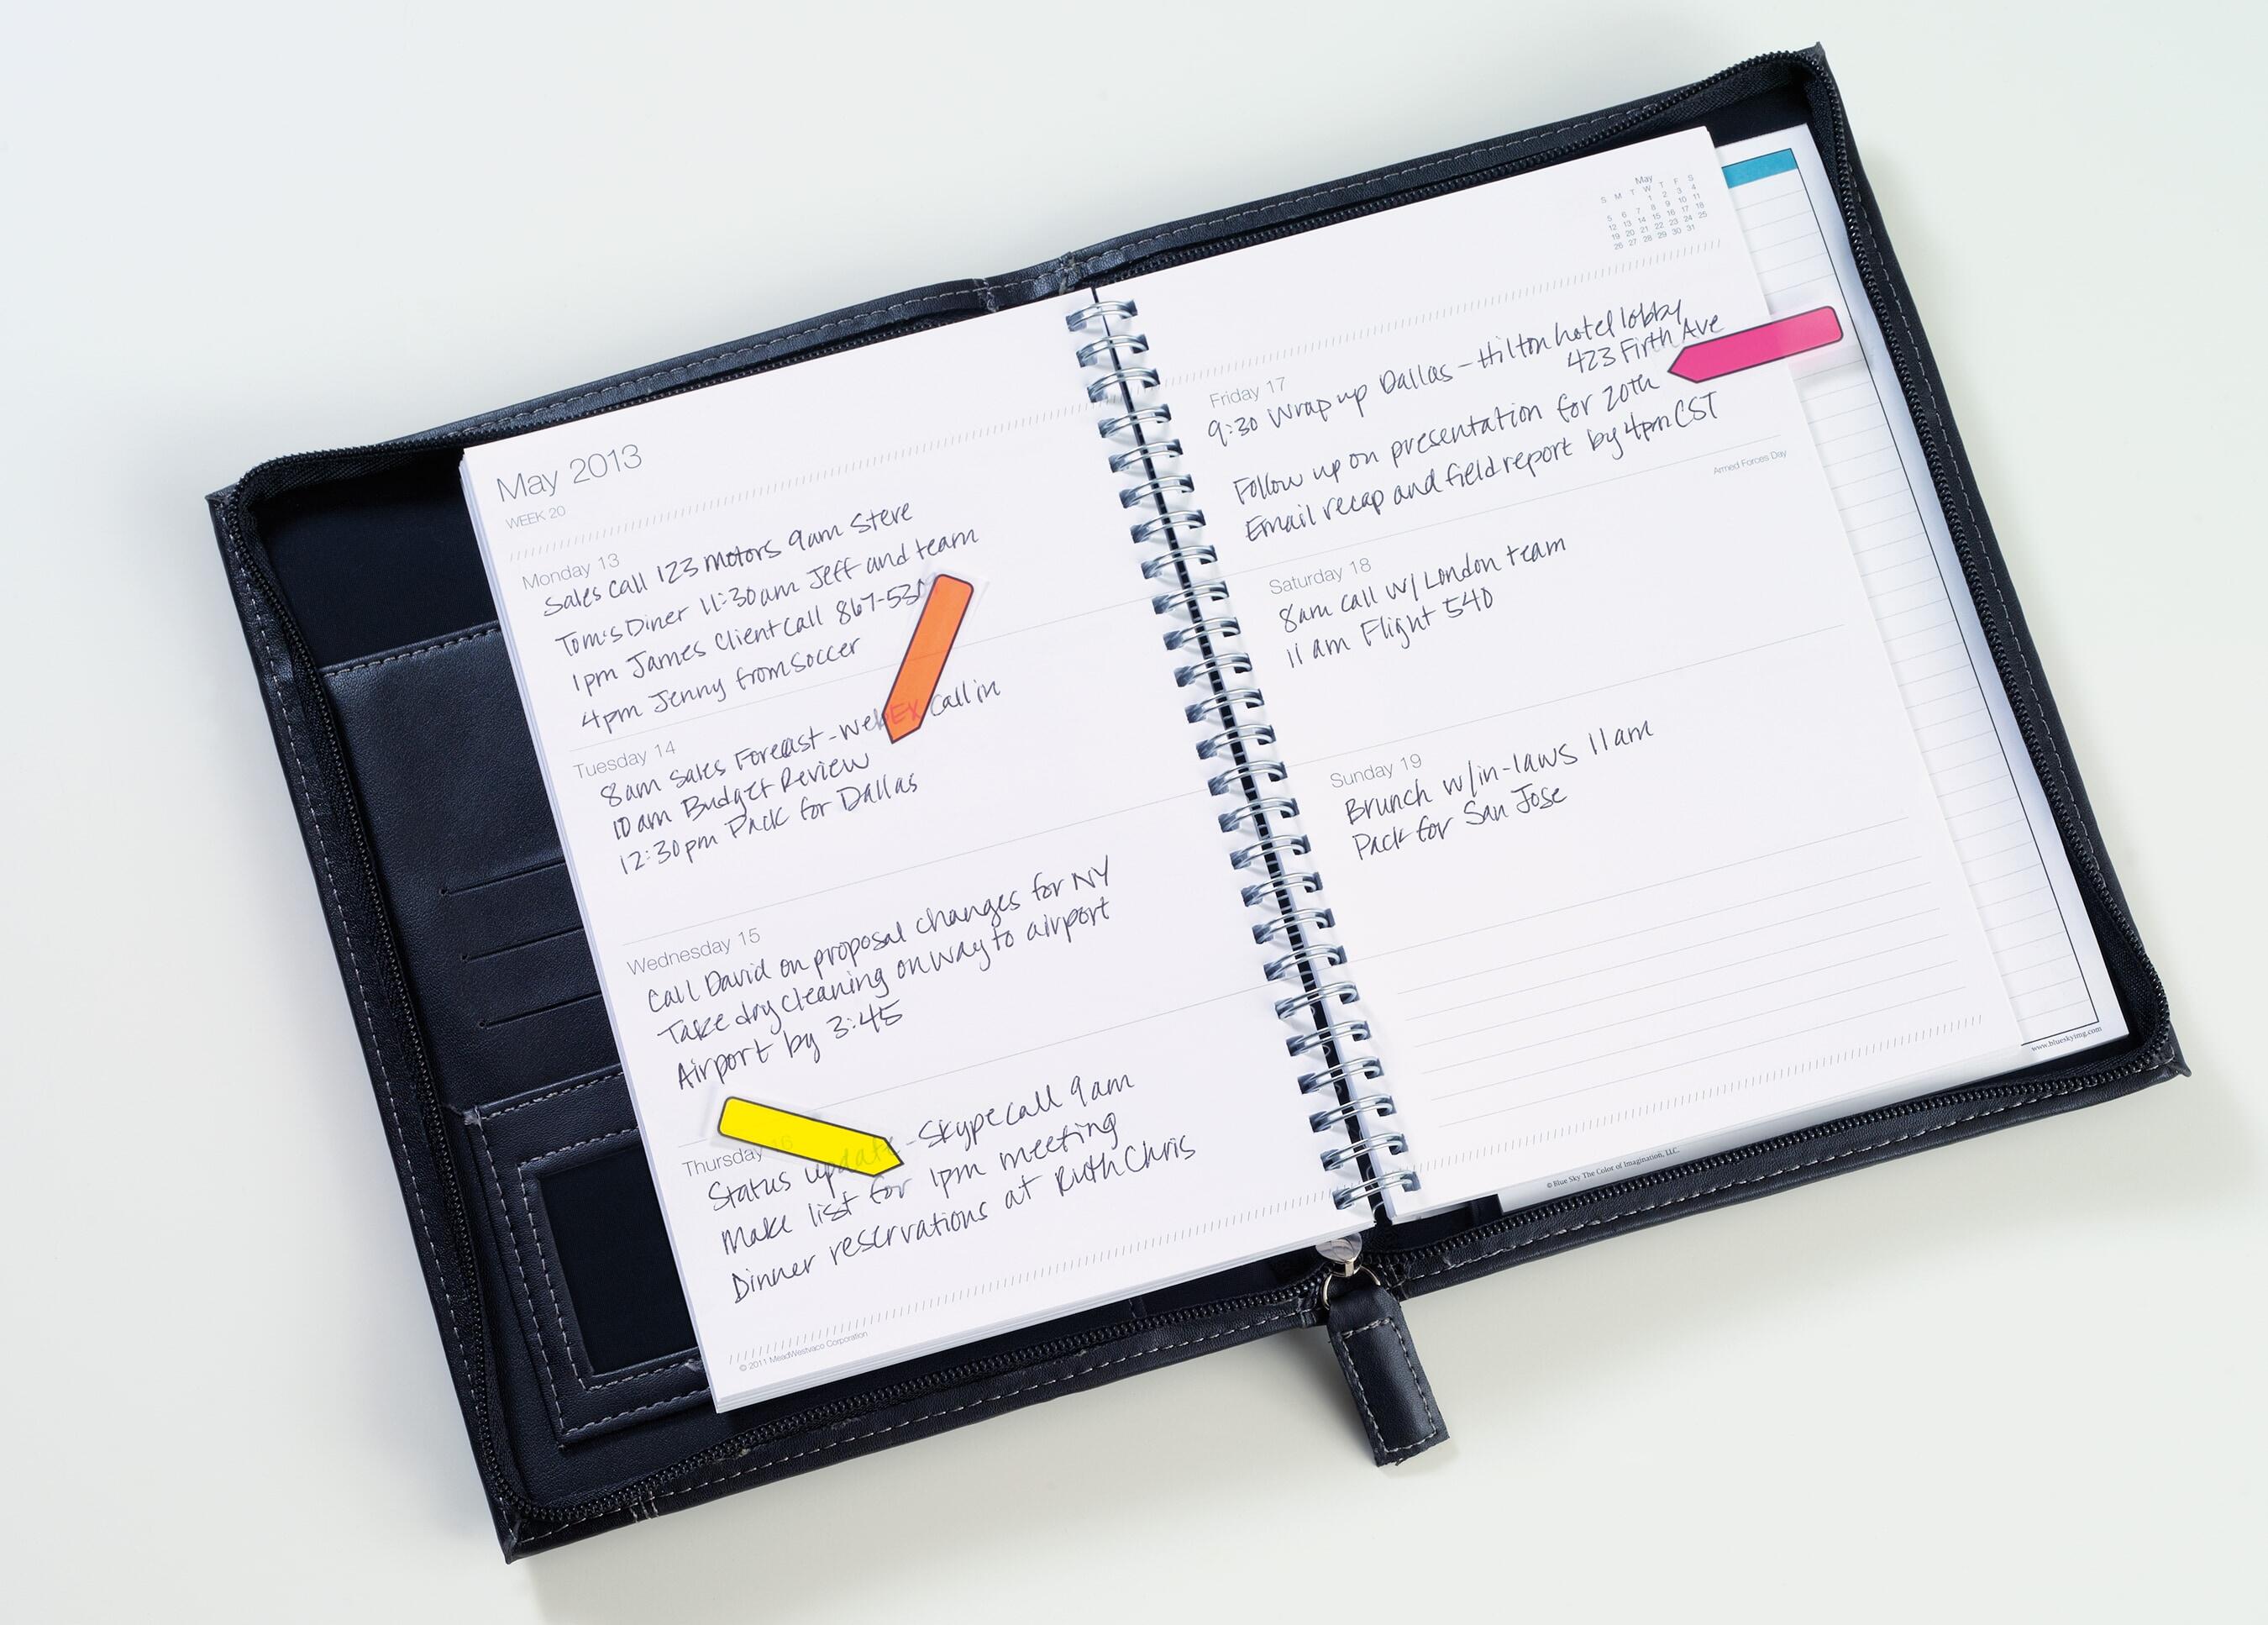 May 2013
WEEK 20
Monday 13
Sales Call 123 Motors 9am Steve
Tom's Diner 11:30am Jeff and team
1pm James Client Call 867-530
4pm Jenny from Soccer
Tuesday 14
8am Sales Forecast - WebEx Call in
10am Budget Review
12:30pm Pack for Dallas
Wednesday 15
Call David on proposal changes for NY
Take dry cleaning on way to airport
Airport by 3:45
Thursday 16
Status update - Skype call 9am
Make list for 1pm meeting
Dinner reservations at Ruth Chris
© 2011 MeadWestvaco Corporation
May
S M T W T F S
1 2 3 4
5 6 7 8 9 10 11
12 13 14 15 16 17 18
19 20 21 22 23 24 25
26 27 28 29 30 31
Friday 17
9:30 Wrap up Dallas - Hilton hotel lobby
423 Firth Ave
Follow up on presentation for 20th
Email recap and field report by 4pm CST
Armed Forces Day
Saturday 18
8am call w/ London team
11am Flight 540
Sunday 19
Brunch w/in-laws 11am
Pack for San Jose
www.blueskyimg.com
© Blue Sky The Color of Imagination, LLC.